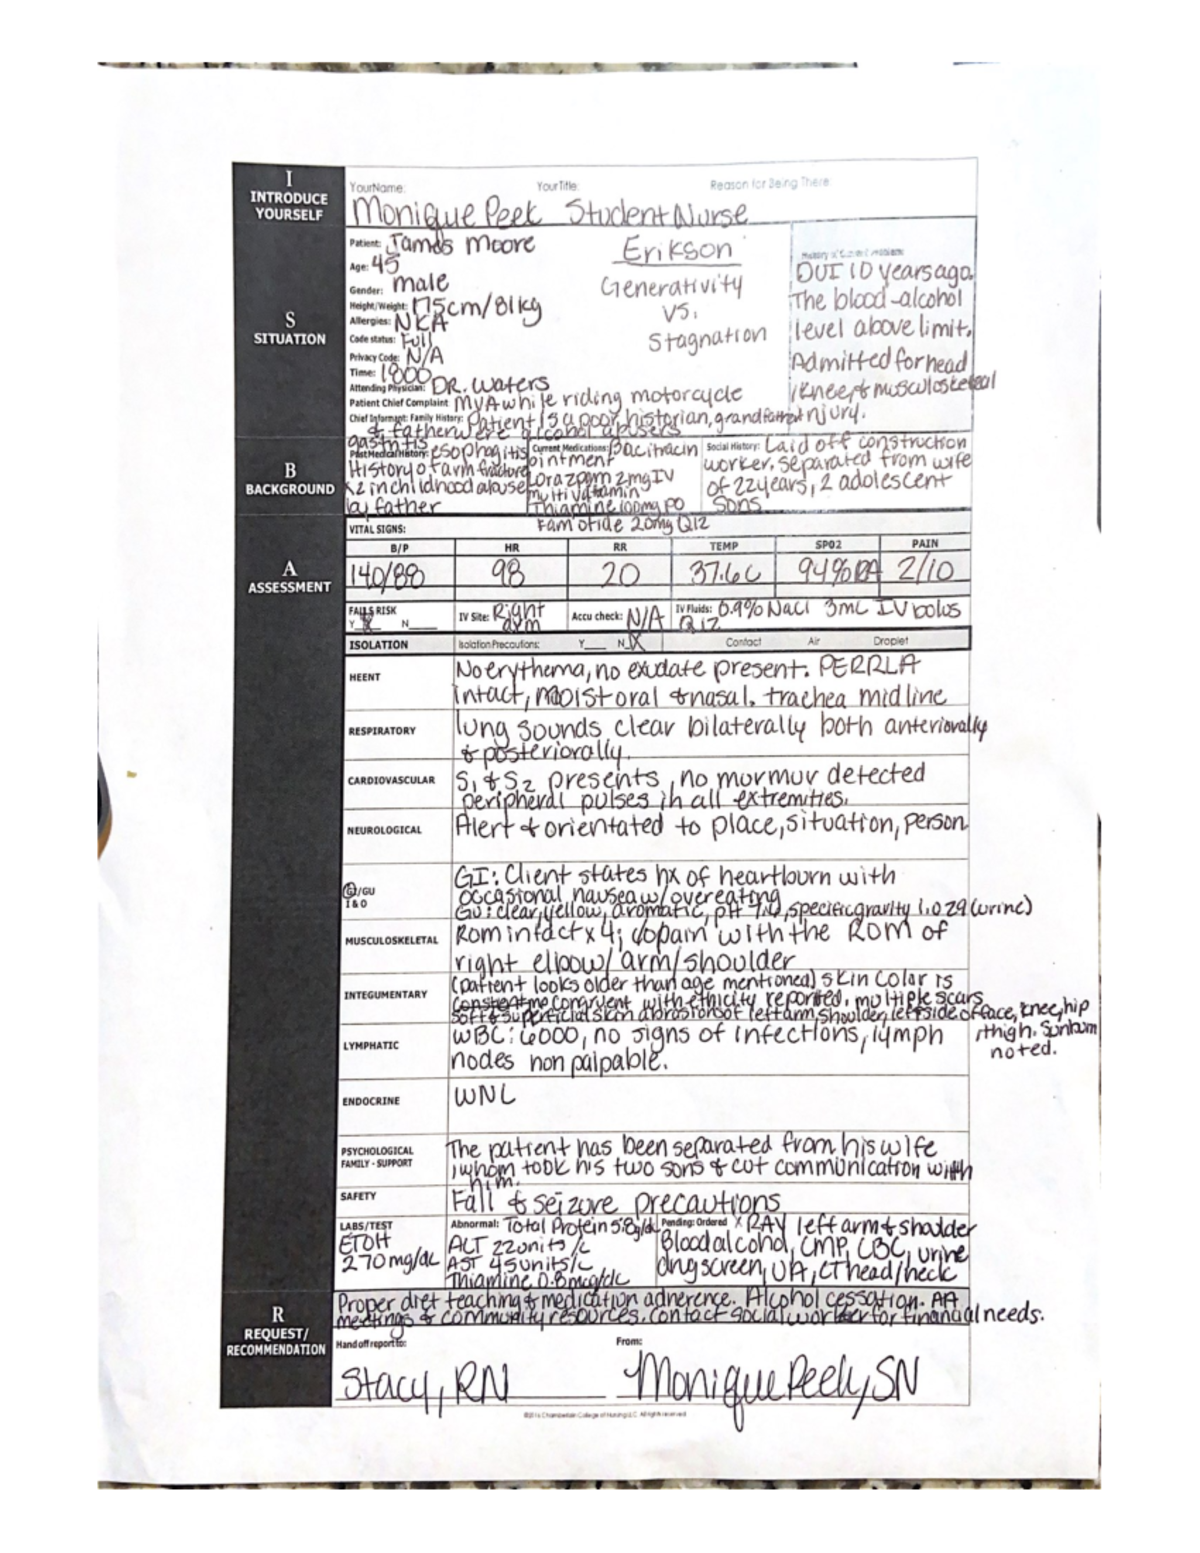 I
INTRODUCE
YOURSELF
YourName: YourTitle: Reason for Being There:
Monique Peek Student Nurse
S
SITUATION
Patient: James Moore
Age: 45
Gender: male
Height/Weight: 175cm/81kg
Allergies: NKA
Code status: Full
Privacy Code: N/A
Time: 1800
Attending Physician: DR. Waters
Patient Chief Complaint MVA while riding motorcycle
Chief Informant: Family History: Patient is a poor historian, grandfather
& father were alcohol abusers
Erikson
Generativity
VS.
Stagnation
DUI 10 years ago.
The blood-alcohol
level above limit.
Admitted for head
, knee & musculoskeletal
injury.
B
BACKGROUND
gastritis
Past Medical History: esophagitis
History of arm fracture
x2 in childhood abuse
by father
Current Medications: Bacitracin
ointment
Lorazpam 2mg IV
multivitamin
Thiamine 100mg PO
Famotide 20mg Q12
Social History: Laid off construction
worker, separated from wife
of 22 years, 2 adolescent
sons
A
ASSESSMENT
VITAL SIGNS:
B/P HR RR TEMP SPO2 PAIN
140/88 98 20 37.6C 94% RA 2/10
FALLS RISK
Y X N
IV Site: Right
arm
Accu check: N/A
IV Fluids: 0.9% NaCl 3mL IV bolus
Q12
ISOLATION Isolation Precautions: Y N X Contact Air Droplet
HEENT
No erythema, no exudate present. PERRLA
intact, moist oral & nasal. trachea midline
RESPIRATORY
lung sounds clear bilaterally both anteriorally
& posteriorally.
CARDIOVASCULAR
S1 & S2 presents, no murmur detected
peripheral pulses in all extremities.
NEUROLOGICAL
Alert & orientated to place, situation, person
GI/GU
I & O
GI: Client states hx of heartburn with
occasional nausea w/overeating
GU: clear, yellow, aromatic, pH 7.0, specific gravity 1.029 (urine)
MUSCULOSKELETAL
Rom intact x 4; c/o pain with the ROM of
right elbow/arm/shoulder
INTEGUMENTARY
(patient looks older than age mentioned) skin color is
congruent with ethicity reported. multiple scars
soft & superficial skin abrasions of left arm, shoulder, left side of face, knee, hip
& thigh. Sunburn
noted.
LYMPHATIC
WBC: 6000, no signs of infections, lymph
nodes non palpable.
ENDOCRINE
WNL
PSYCHOLOGICAL
FAMILY - SUPPORT
The patient has been separated from his wife
, whom took his two sons & cut communication with
him.
SAFETY
Fall & seizure precautions
LABS/TEST
ETOH
270 mg/dL
Abnormal: Total Protein 5.8g/dL
ALT 22units/L
AST 45units/L
Thiamine 0.8mcg/dL
Pending: Ordered XRAY left arm & shoulder
Blood alcohol, CMP, CBC, urine
drug screen, UA, CT head/neck
R
REQUEST/
RECOMMENDATION
Proper diet teaching & medication adherence. Alcohol cessation. AA
meetings & community resources. contact social worker for financial needs.
Hand off report to: From:
Stacy, RN Monique Peek, SN
©2016 Chamberlain College of Nursing LLC. All rights reserved